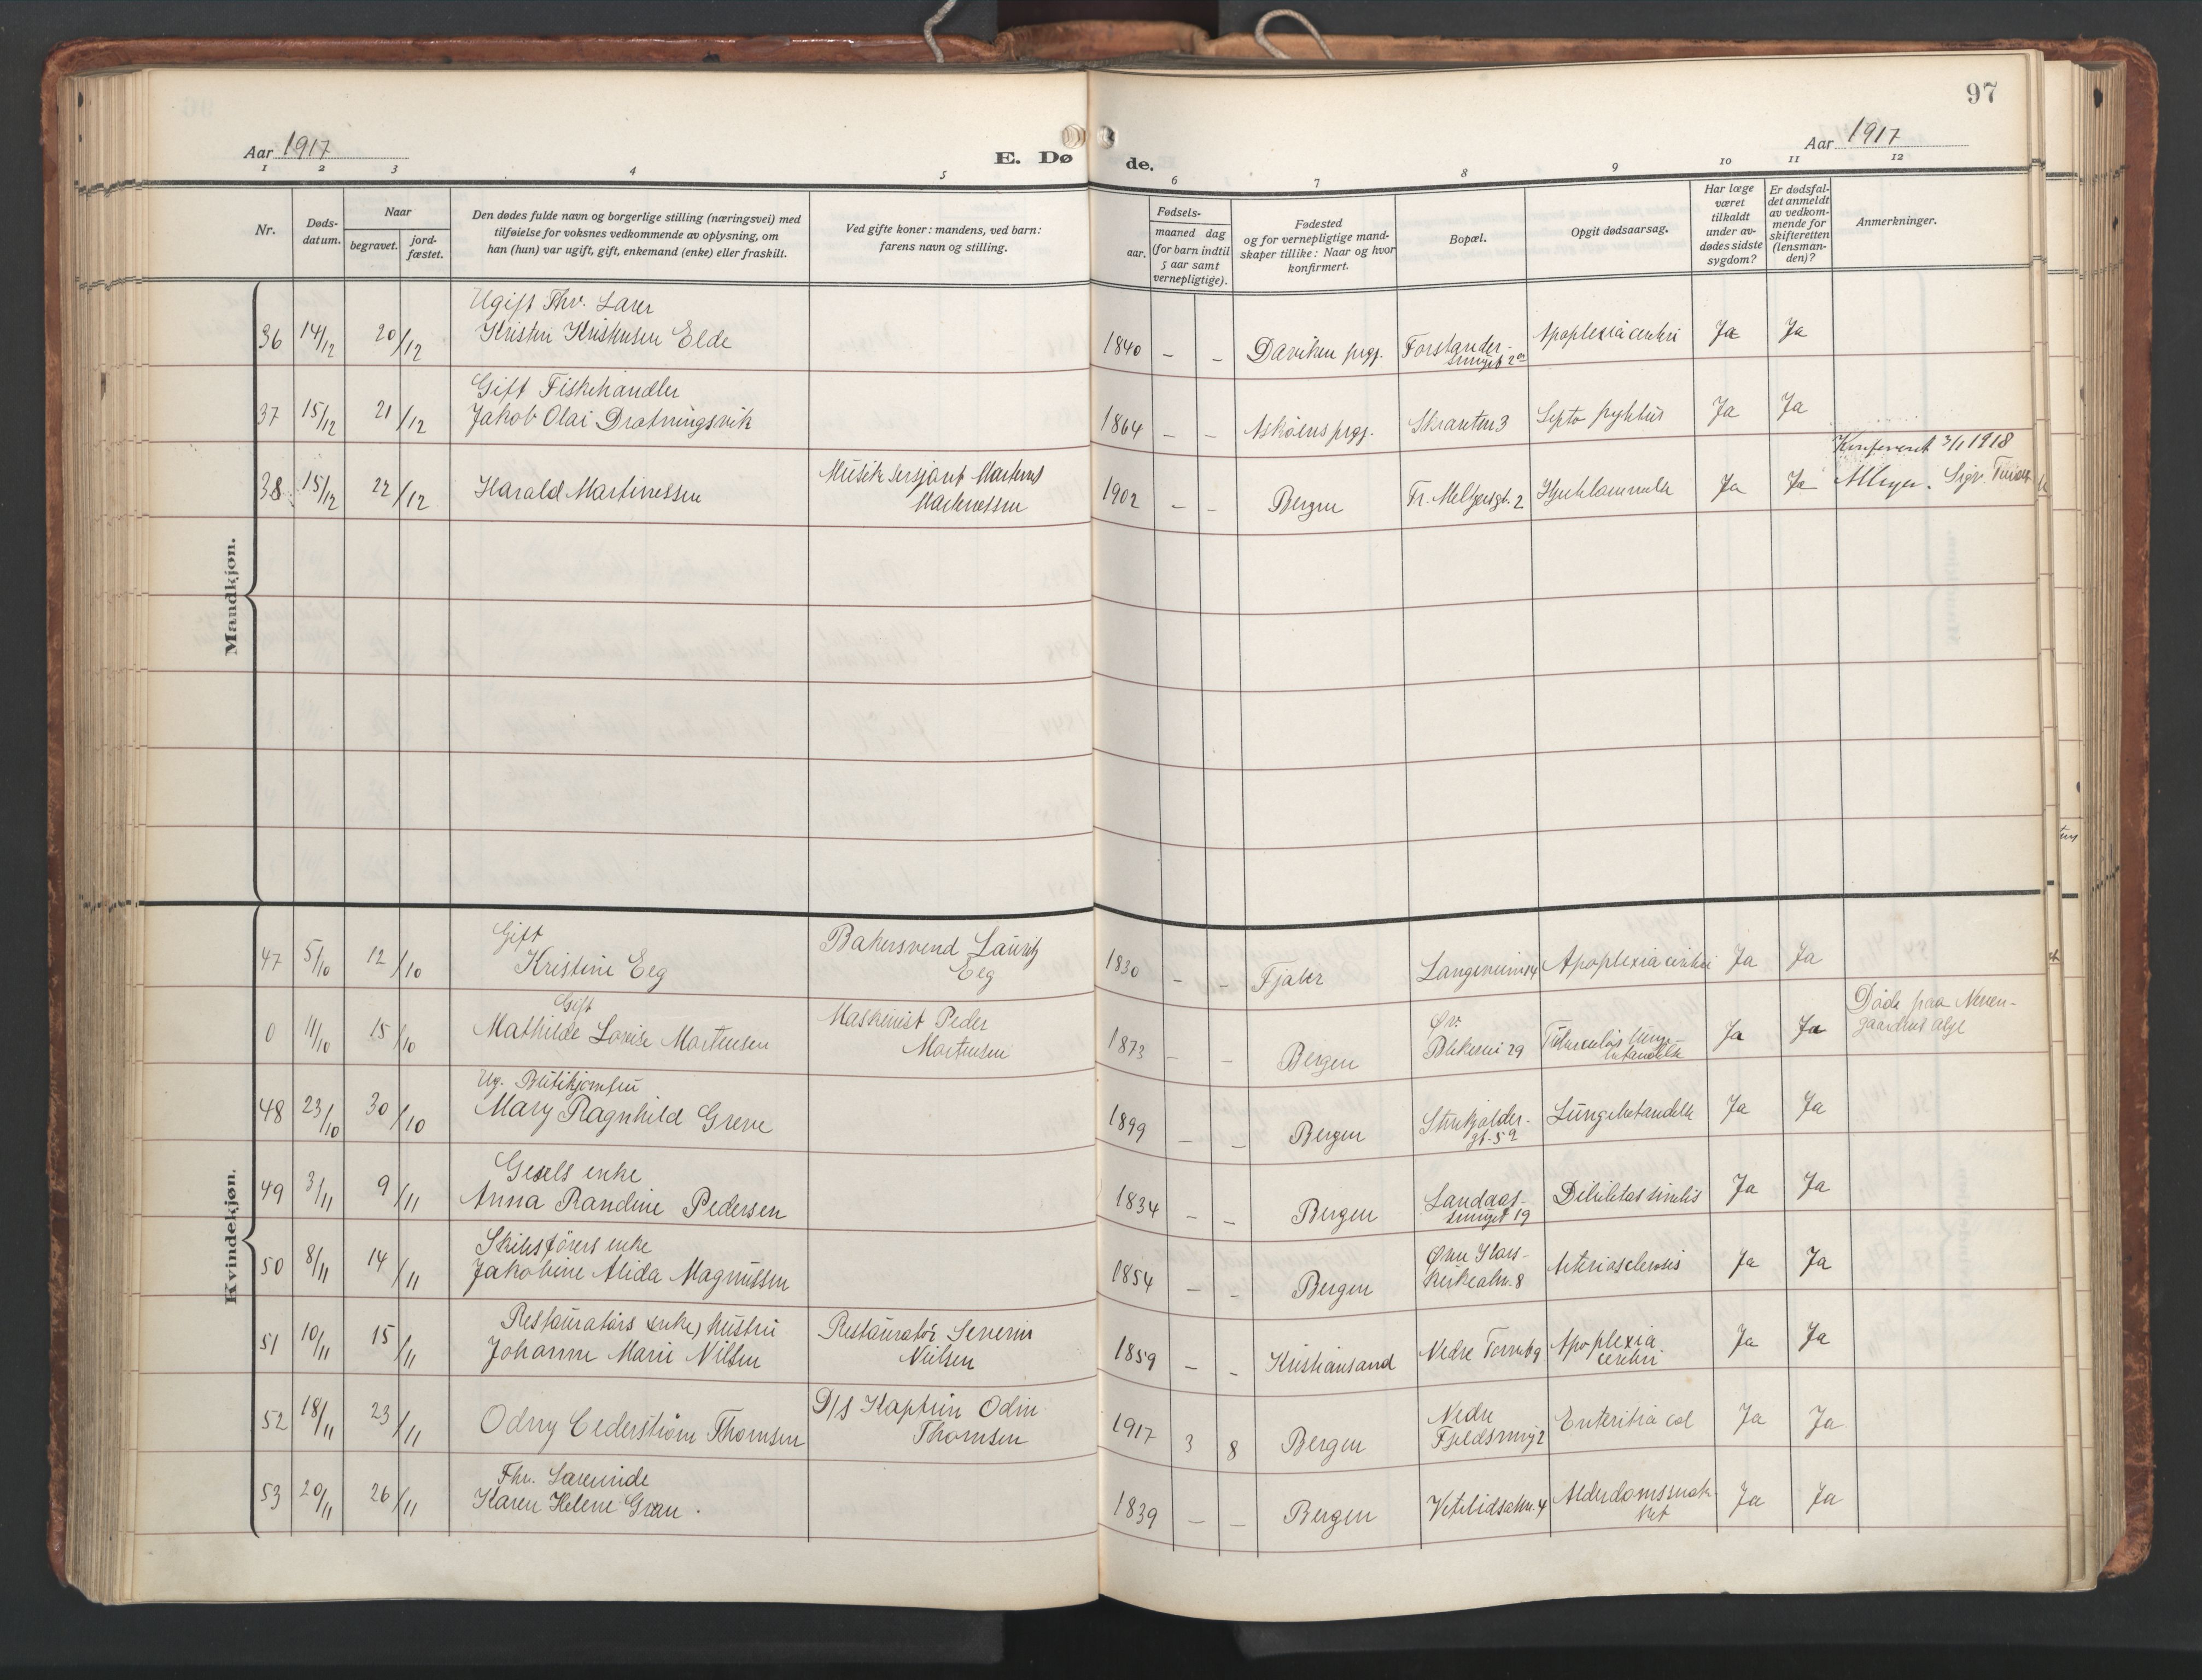 97
Aar 1917
E. Dø de.
Aar 1917
1 2 3 4 5 6 7 8 9 10 11 12
Nr.
Døds-
datum.
Naar
begravet.
jord-
fæstet.
Den dødes fulde navn og borgerlige stilling (næringsvei) med
tilføielse for voksnes vedkommende av oplysning, om
han (hun) var ugift, gift, enkemand (enke) eller fraskilt.
Ved gifte koner: mandens, ved barn:
farens navn og stilling.
Fødsels-
aar.
maaned dag
(for barn indtil
5 aar samt
vernepligtige).
Fødested
og for vernepligtige mand-
skaper tillike: Naar og hvor
konfirmert.
Bopæl.
Opgit dødsaarsag.
Har læge
været
tilkaldt
under av-
dødes sidste
sygdom?
Er dødsfal-
det anmeldt
av vedkom-
mende for
skifteretten
(lensman-
den)?
Anmerkninger.
Mandkjøn.
Ugift Fhv. Lærer
36 14/12 20/12 Kristen Kristensen Elde 1840 – – Daviken prgj. Forstander-
smuget 2 Apoplexia cerebri Ja Ja
Gift Fiskehandler
37 15/12 21/12 Jakob Olai Dratningsvik 1864 – – Askøens prgj. Skranten 3 Ja Ja
38 15/12 22/12 Harald Martinessen Musik sersjant Martens
Martinessen 1902 – – Bergen Fr. Meltzersgt. 2 Hjerte Ja Ja
Konfereret 3/1 1918
Kvindekjøn.
Gift
47 5/10 12/10 Kristine Eeg Bakersvend Lauritz
Eeg 1830 – – Fjaler Langeveien 14 Apoplexia cerebri Ja Ja
Gift
0 11/10 15/10 Mathilde Lovise Mortensen Maskinist Peder
Mortensen 1873 – – Bergen Øv.
Blekevei 29 Tuberculøs lunge-
betændelse Ja Ja Døde paa Neven-
gaardens asyl
Ug. Butikjomfru
48 23/10 30/10 Mary Ragnhild Greve 1899 – – Bergen Strukjelder-
gt. 52 Lungebetændelse Ja Ja
Gesels enke
49 3/11 9/11 Anna Randine Pedersen 1834 – – Bergen Landaas-
smuget 19 Debilitas senilis Ja Ja
Skibsførers enke
50 8/11 14/11 Jakobine Alida Magnussen 1854 – – Bergen Øvre Kors-
kirkealm. 8 Arteriosclerosis Ja Ja
Restauratørs (enke) hustru
51 10/11 15/11 Johanne Marie Nilsen Restauratør Severin
Nielsen 1859 – – Kristiansand Nedre 9 Apoplexia
cerebri Ja Ja
52 18/11 23/11 Odny Cederstrøm Thomsen D/S Kaptein Odin
Thomsen 1917 3 8 Bergen Nedre
Fjeldsmug 2 Enteritis col Ja Ja
Fhv. Lærerinde
53 20/11 26/11 Karen Helene Gran. 1839 – – Bergen Vetrlidsalm. 4 Alderdomssvak-
het Ja Ja